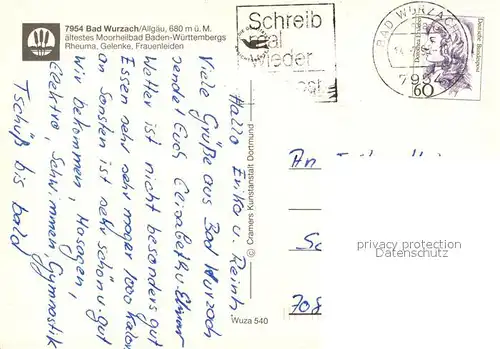 7954 Bad Wurzach/Allgäu, 680 m ü. M.
ältestes Moorheilbad Baden-Württembergs
Rheuma, Gelenke, Frauenleiden
Schreib
mal
wieder
BAD WURZACH
795
Deutsche Bundespost
60
Hallo Erika u. Reinh.
Viele Grüße aus Bad Wurzach
sendet Euch Elisabeth u. Elmar
Wetter ist nicht besonders gut
Essen sehr sehr mager 1000 Kalor.
an sonsten ist sehr schön u. gut
Wir bekommen, Massagen,
Elektro, Schwimmen, Gymnastik
Tschüß bis bald
© Cramers Kunstanstalt Dortmund
Wuza 540
An
708
privacy protection
Datenschutz